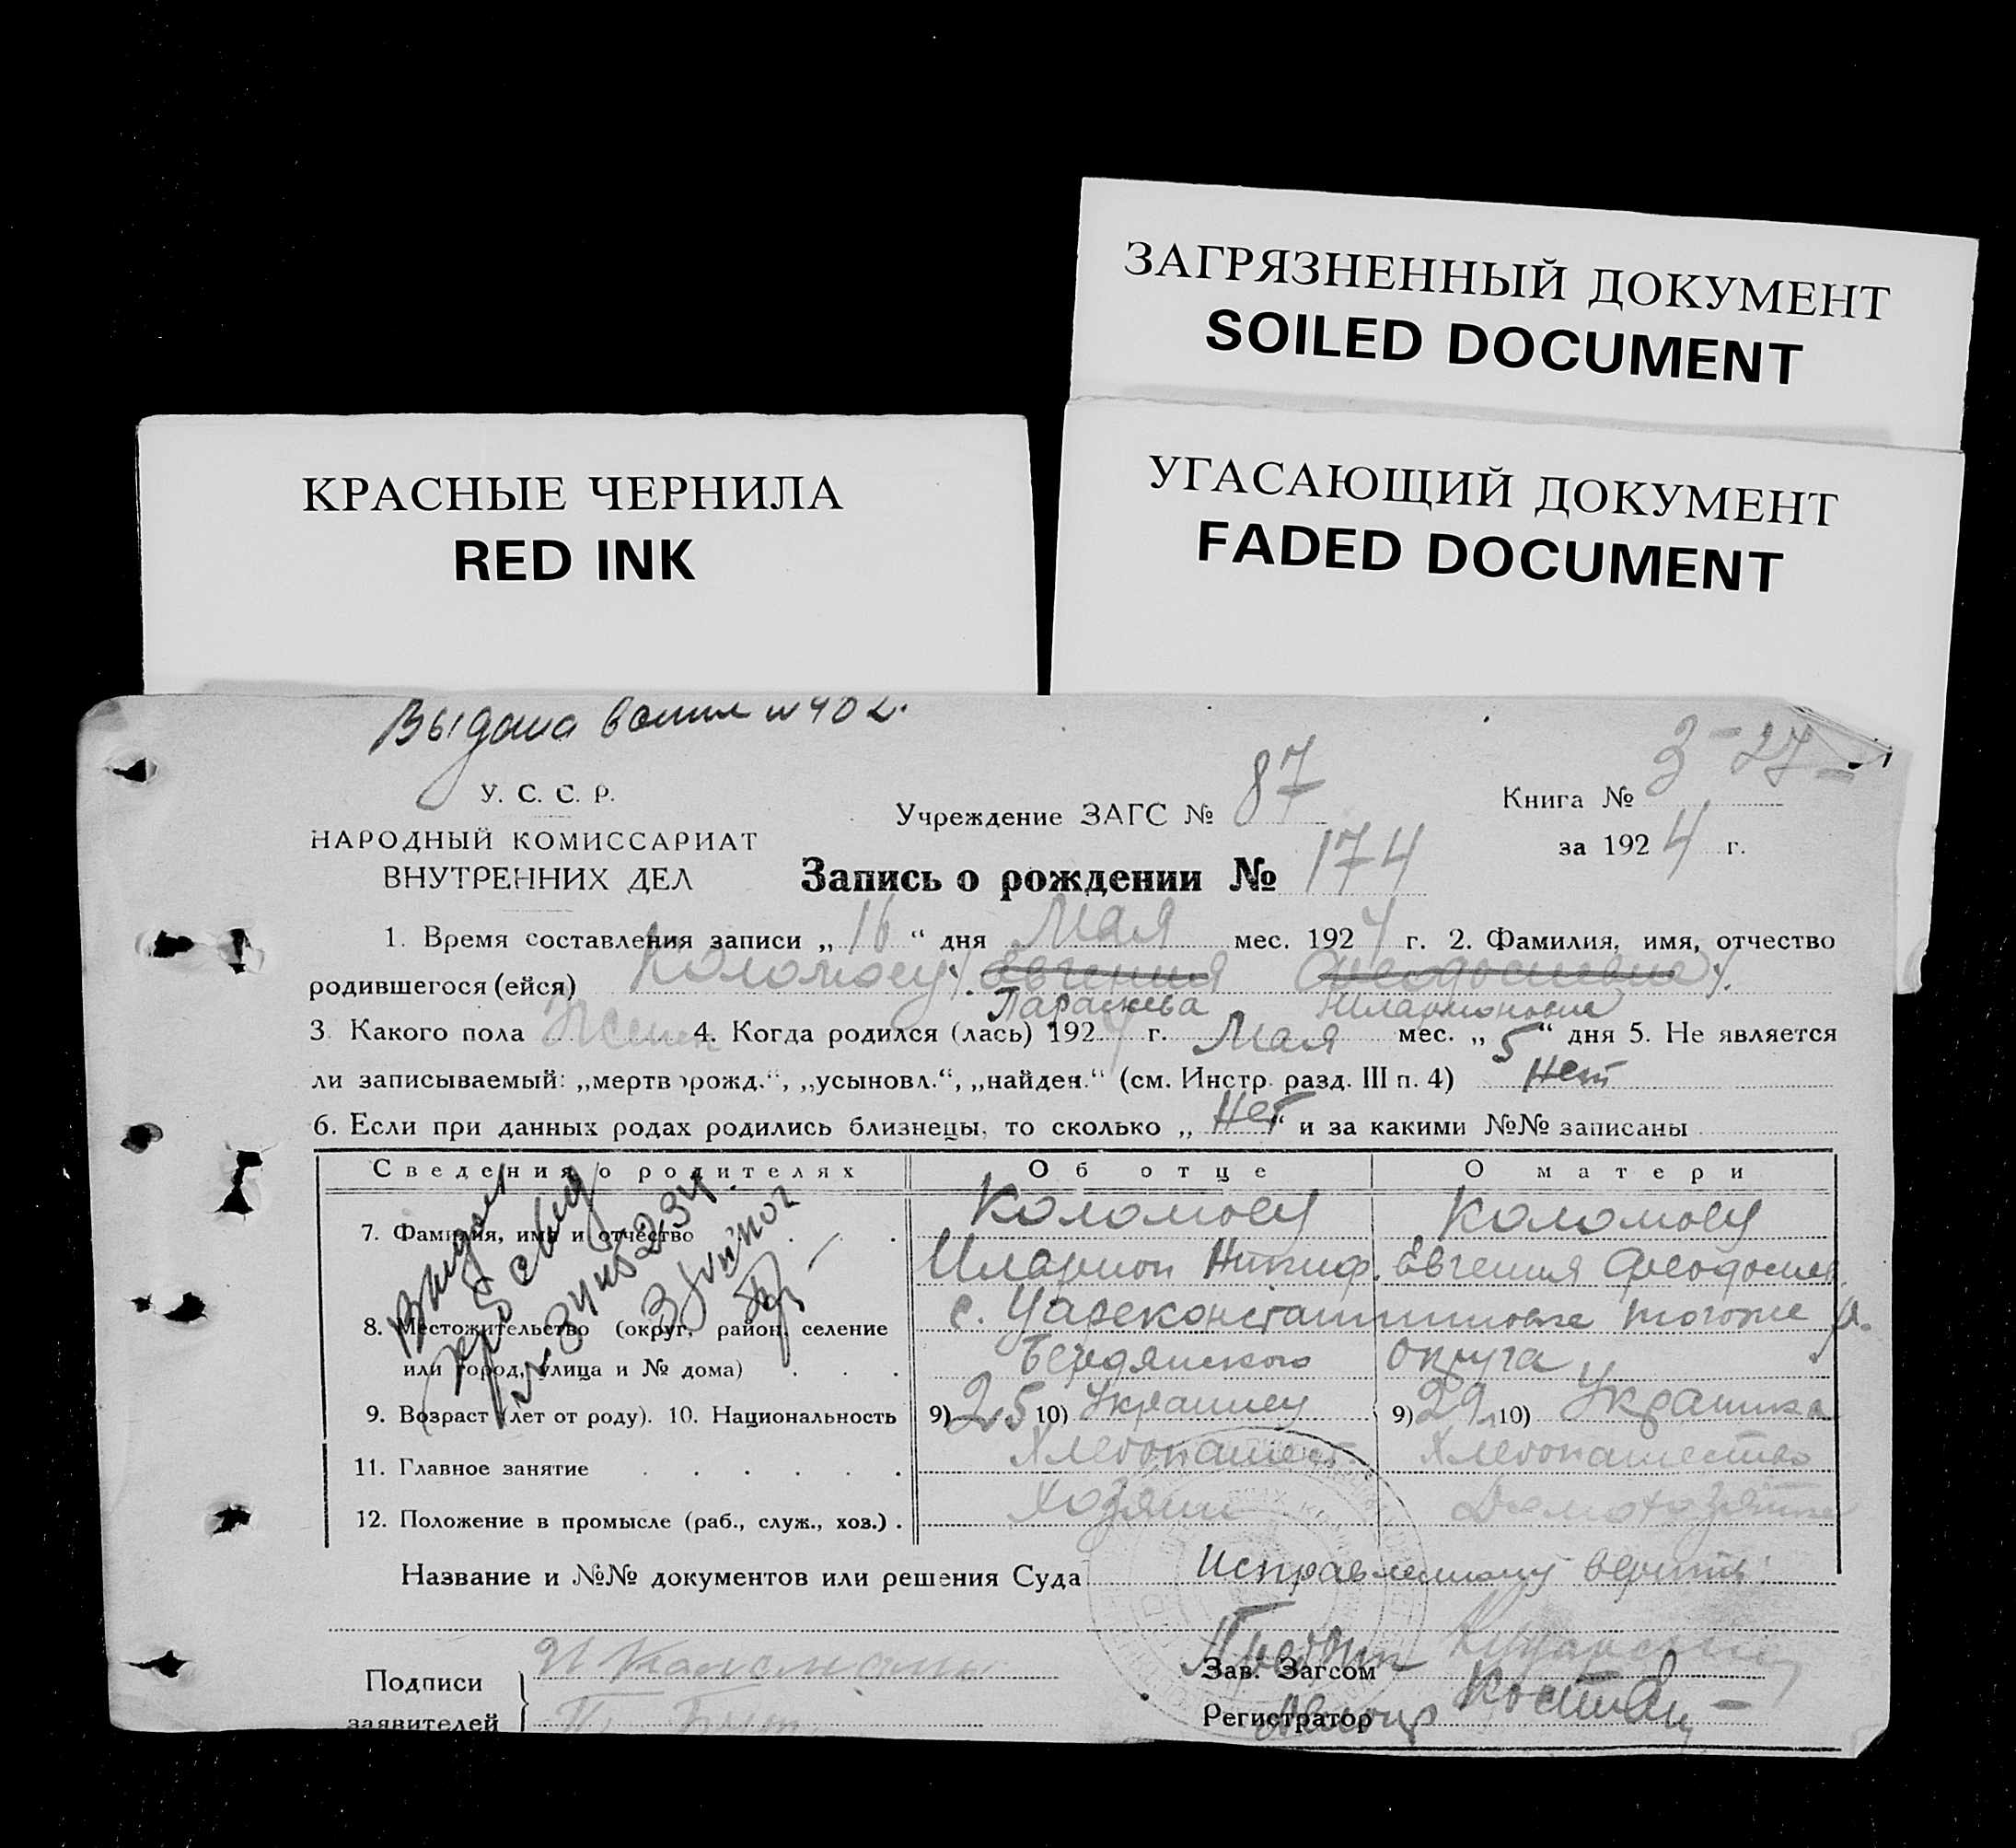 ЗАГРЯЗНЕННЫЙ ДОКУМЕНТ
SOILED DOCUMENT
КРАСНЫЕ ЧЕРНИЛА
RED INK
УГАСАЮЩИЙ ДОКУМЕНТ
FADED DOCUMENT
Выдана
3-27
У. С. С. Р.
НАРОДНЫЙ КОМИССАРИАТ
ВНУТРЕННИХ ДЕЛ
Учреждение ЗАГС № 87
Книга №
за 1924 г.
Запись о рождении № 174
1. Время составления записи „16“ дня Мая мес. 1924 г. 2. Фамилия, имя, отчество
родившегося (ейся) Коломоец Евгения Феодосиевна
Параскева Иларионовна
3 Какого пола Жен 4. Когда родился (лась) 1924 г. Мая мес. „5“ дня 5. Не является
ли записываемый: „мертворожд.“, „усыновл.“, „найден.“ (см. Инстр. разд. III п. 4) Нет
6. Если при данных родах родились близнецы, то сколько „Нет“ и за какими №№ записаны
Сведения о родителях Об отце О матери
Коломоец Коломоец
7. Фамилия, имя и отчество
Иларион Никиф. Евгения Феодосиев.
8. Местожительство (округ, район, селение с. Цареконстантиновке тогоже р.
или город, улица и № дома) Бердянского округа
9. Возраст (лет от роду). 10. Национальность 9) 25 10) Украинец 9) 29 10) Украинка
11. Главное занятие Хлебопашест. Хлебопашество
12. Положение в промысле (раб., служ., хоз.) Хозяин Домохозяйка
Название и №№ документов или решения Суда Исправленному верить:
Подписи
заявителей
Зав. Загсом
Регистратор